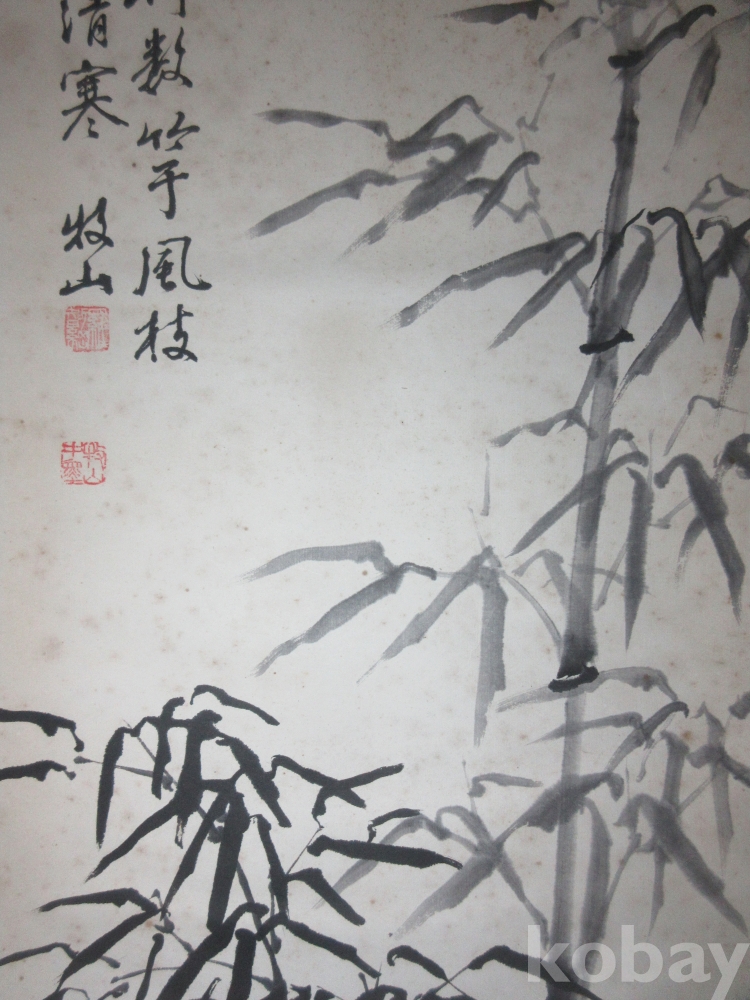 数竿風枝
清寒 牧山
kobay